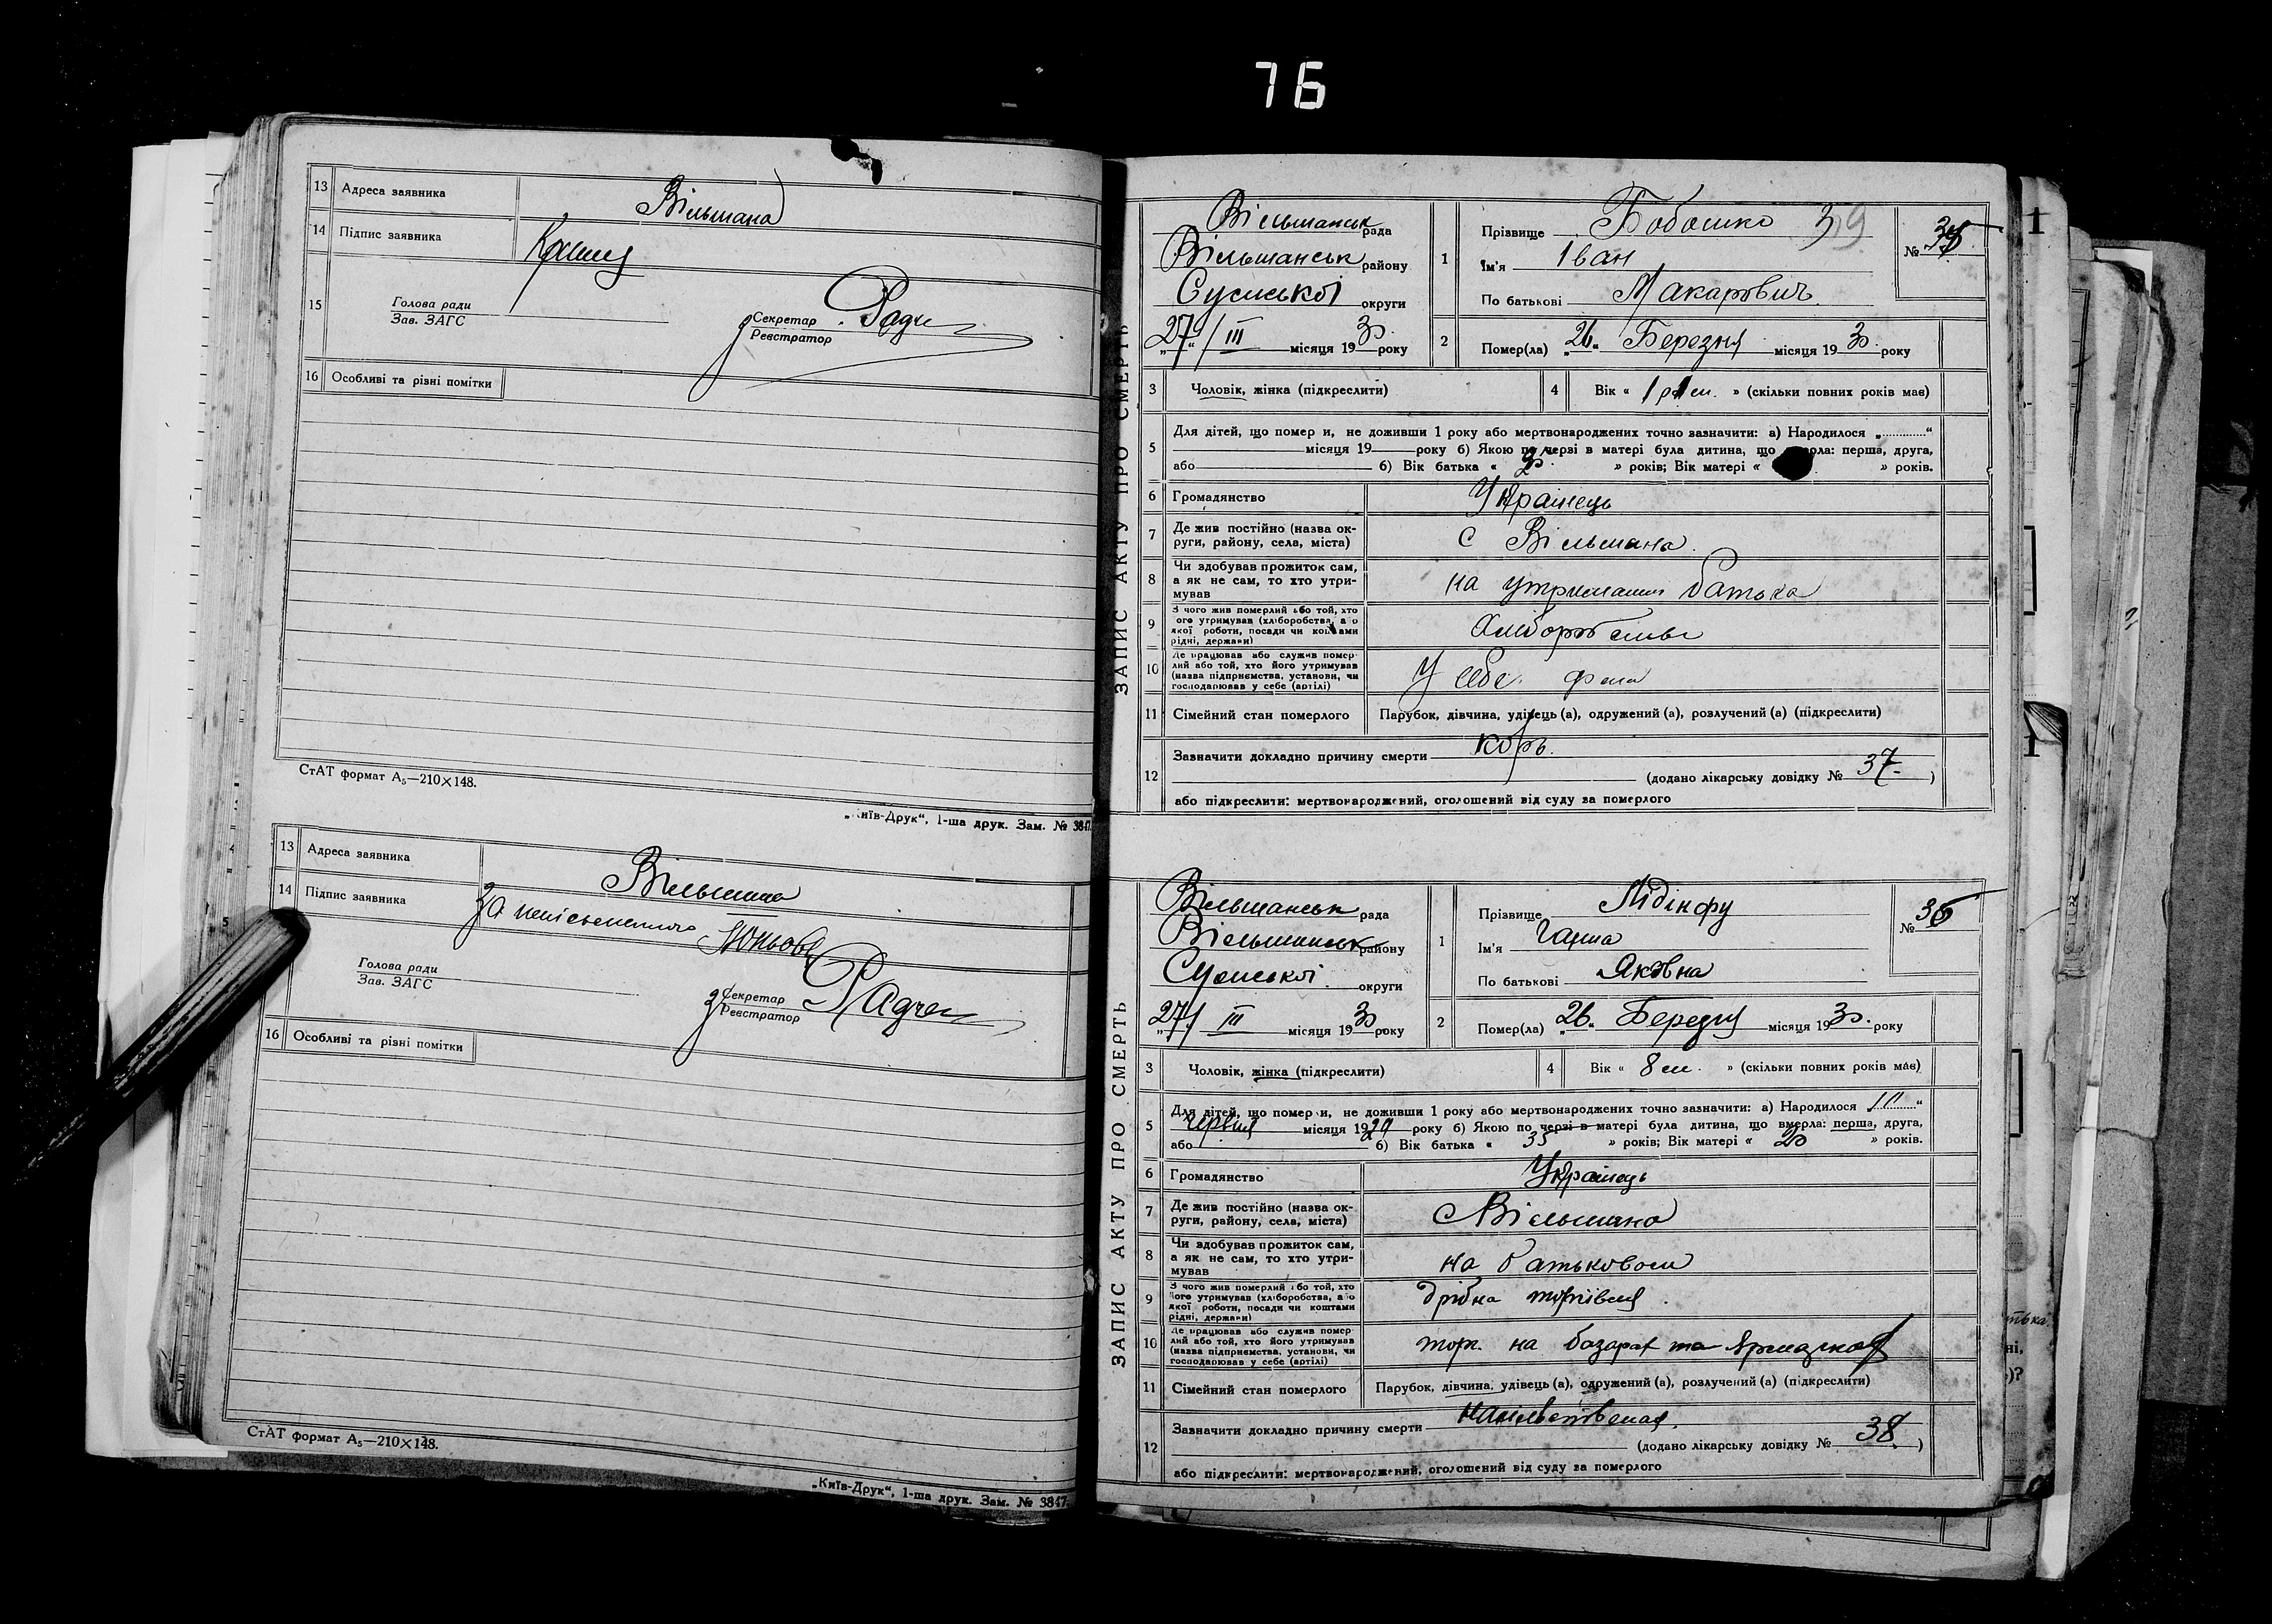 76
13 Адреса заявника Вільшана
14 Підпис заявника
15 Голова ради
Зав. ЗАГС
Секретар
Реєстратор
16 Особливі та різні помітки
СтАТ формат А₅—210×148.
„Київ-Друк“, 1-ша друк. Зам. № 3847.
13 Адреса заявника Вільшана
14 Підпис заявника За неписьменного
Голова ради
Зав. ЗАГС
Секретар
Реєстратор
16 Особливі та різні помітки
СтАТ формат А₅—210×148.
„Київ-Друк“, 1-ша друк. Зам. № 3847.
ЗАПИС АКТУ ПРО СМЕРТЬ
Вільшанськ рада
Вільшанськ району
Сумської округи
„27“ III місяця 1930 року
1 Прізвище Бобошко 39
Ім'я Іван
По батькові Макарович
№
2 Помер(ла) „26“ Березня місяця 1930 року
3 Чоловік, жінка (підкреслити)
4 Вік « » (скільки повних років має)
5 Для дітей, що померли, не доживши 1 року або мертвонароджених точно зазначити: а) Народилося „ “
місяця 19 року б) Якою по черзі в матері була дитина, що вмерла: перша, друга,
або б) Вік батька « » років; Вік матері « » років.
6 Громадянство Українець
7 Де жив постійно (назва ок-
руги, району, села, міста) с Вільшана
8 Чи здобував прожиток сам,
а як не сам, то хто утри-
мував на утриманні батька
9 З чого жив померлий або той, хто
його утримував (хліборобства, або
якої роботи, посади чи коштами
рідні, держави)
10 Де працював або служив помер-
лий або той, хто його утримував
(назва підприємства, установи, чи
господарював у себе (артілі) У себе
11 Сімейний стан померлого Парубок, дівчина, удівець (а), одружений (а), розлучений (а) (підкреслити)
12 Зазначити докладно причину смерти корь.
(додано лікарську довідку № 37 )
або підкреслити: мертвонароджений, оголошений від суду за померлого
ЗАПИС АКТУ ПРО СМЕРТЬ
Вільшанськ рада
Вільшанськ району
Сумської округи
„27“ III місяця 1930 року
1 Прізвище
Ім'я Ганна
По батькові Яківна
№ 36
2 Помер(ла) „26“ Березня місяця 1930. року
3 Чоловік, жінка (підкреслити)
4 Вік « 8 м. » (скільки повних років має)
5 Для дітей, що померли, не доживши 1 року або мертвонароджених точно зазначити: а) Народилося „ “
червня місяця 1929 року б) Якою по черзі в матері була дитина, що вмерла: перша, друга,
або б) Вік батька « 35 » років; Вік матері « 20 » років.
6 Громадянство Українець
7 Де жив постійно (назва ок-
руги, району, села, міста) Вільшана
8 Чи здобував прожиток сам,
а як не сам, то хто утри-
мував на батьковом
9 З чого жив померлий або той, хто
його утримував (хліборобства, або
якої роботи, посади чи коштами
рідні, держави) дрібна торгівля
10 Де працював або служив помер-
лий або той, хто його утримував
(назва підприємства, установи, чи
господарював у себе (артілі) торг. на базарах та ярмарках
11 Сімейний стан померлого Парубок, дівчина, удівець (а), одружений (а), розлучений (а) (підкреслити)
12 Зазначити докладно причину смерти
(додано лікарську довідку № 38 )
або підкреслити: мертвонароджений, оголошений від суду за померлого